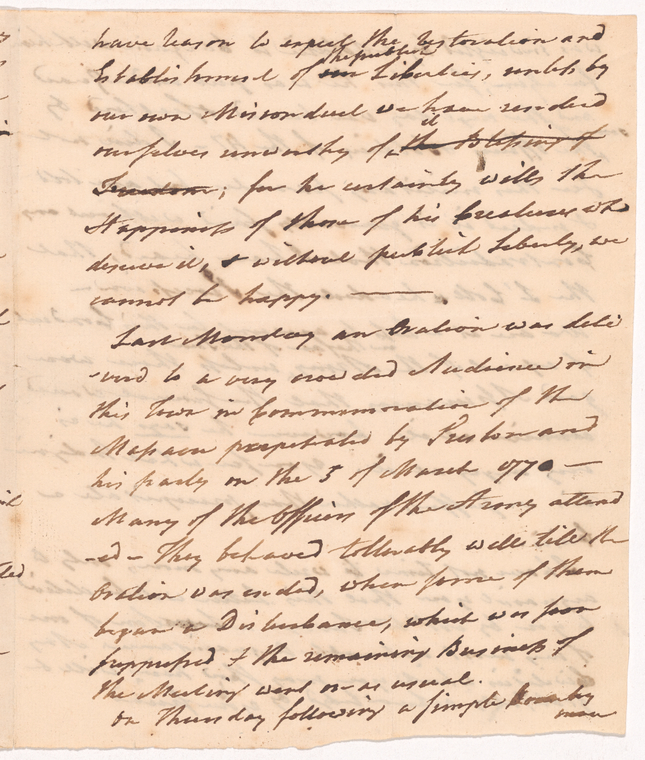 have reason to expect the restoration and
the publick
Establishment of our Liberties, unless by
our own Misconduct we have rendered
it
ourselves unworthy of the Blessing of
Freedom; for he certainly wills the
Happiness of those of his Creatures who
deserve it, & without publick Liberty, we
cannot be happy. —
Last Monday an Oration was deli
-verd to a very crowded Audience in
this Town in Commemoration of the
Massacre perpetrated by Preston and
his party on the 5 of March 1770 —
Many of the Officers of the Army attend
-ed - They behaved tollerably well till the
Oration was ended, when some of them
began a Disturbance, which was soon
suppressed & the remaining Business of
the Meeting went on as usual.
On Thursday following a simple Country
man